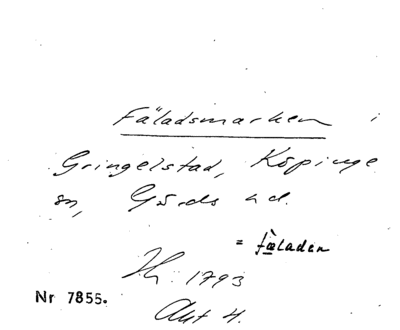 Fäladsmarken i
Gringelstad, Köpinge
sn, Gärds hd.
= fäladen
Hr. 1793
Nr 7855.
Akt 4.